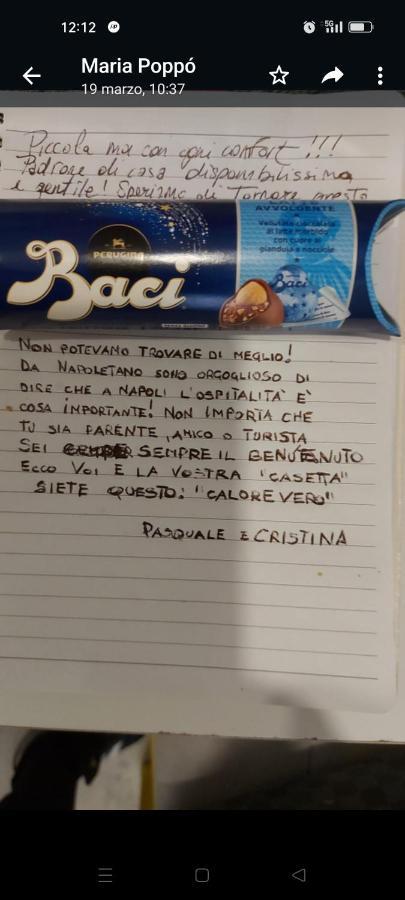 12:12
5G
Maria Poppó
19 marzo, 10:37
Piccola ma con ogni confort!!!
Padrone di casa disponibilissima
e gentile! Speriamo di tornare presto
AVVOLGENTE
Vellutato cioccolato
al latte ripieno
con cuore di
gianduia e nocciole
PERUGINA
Baci
Baci
NON POTEVAMO TROVARE DI MEGLIO!
DA NAPOLETANO SONO ORGOGLIOSO DI
DIRE CHE A NAPOLI L'OSPITALITA' E'
COSA IMPORTANTE! NON IMPORTA CHE
TU SIA PARENTE, AMICO O TURISTA
SEI SEMPRE IL BENVENUTO
ECCO VOI E LA VOSTRA "CASETTA"
SIETE QUESTO: "CALORE VERO"
PASQUALE E CRISTINA